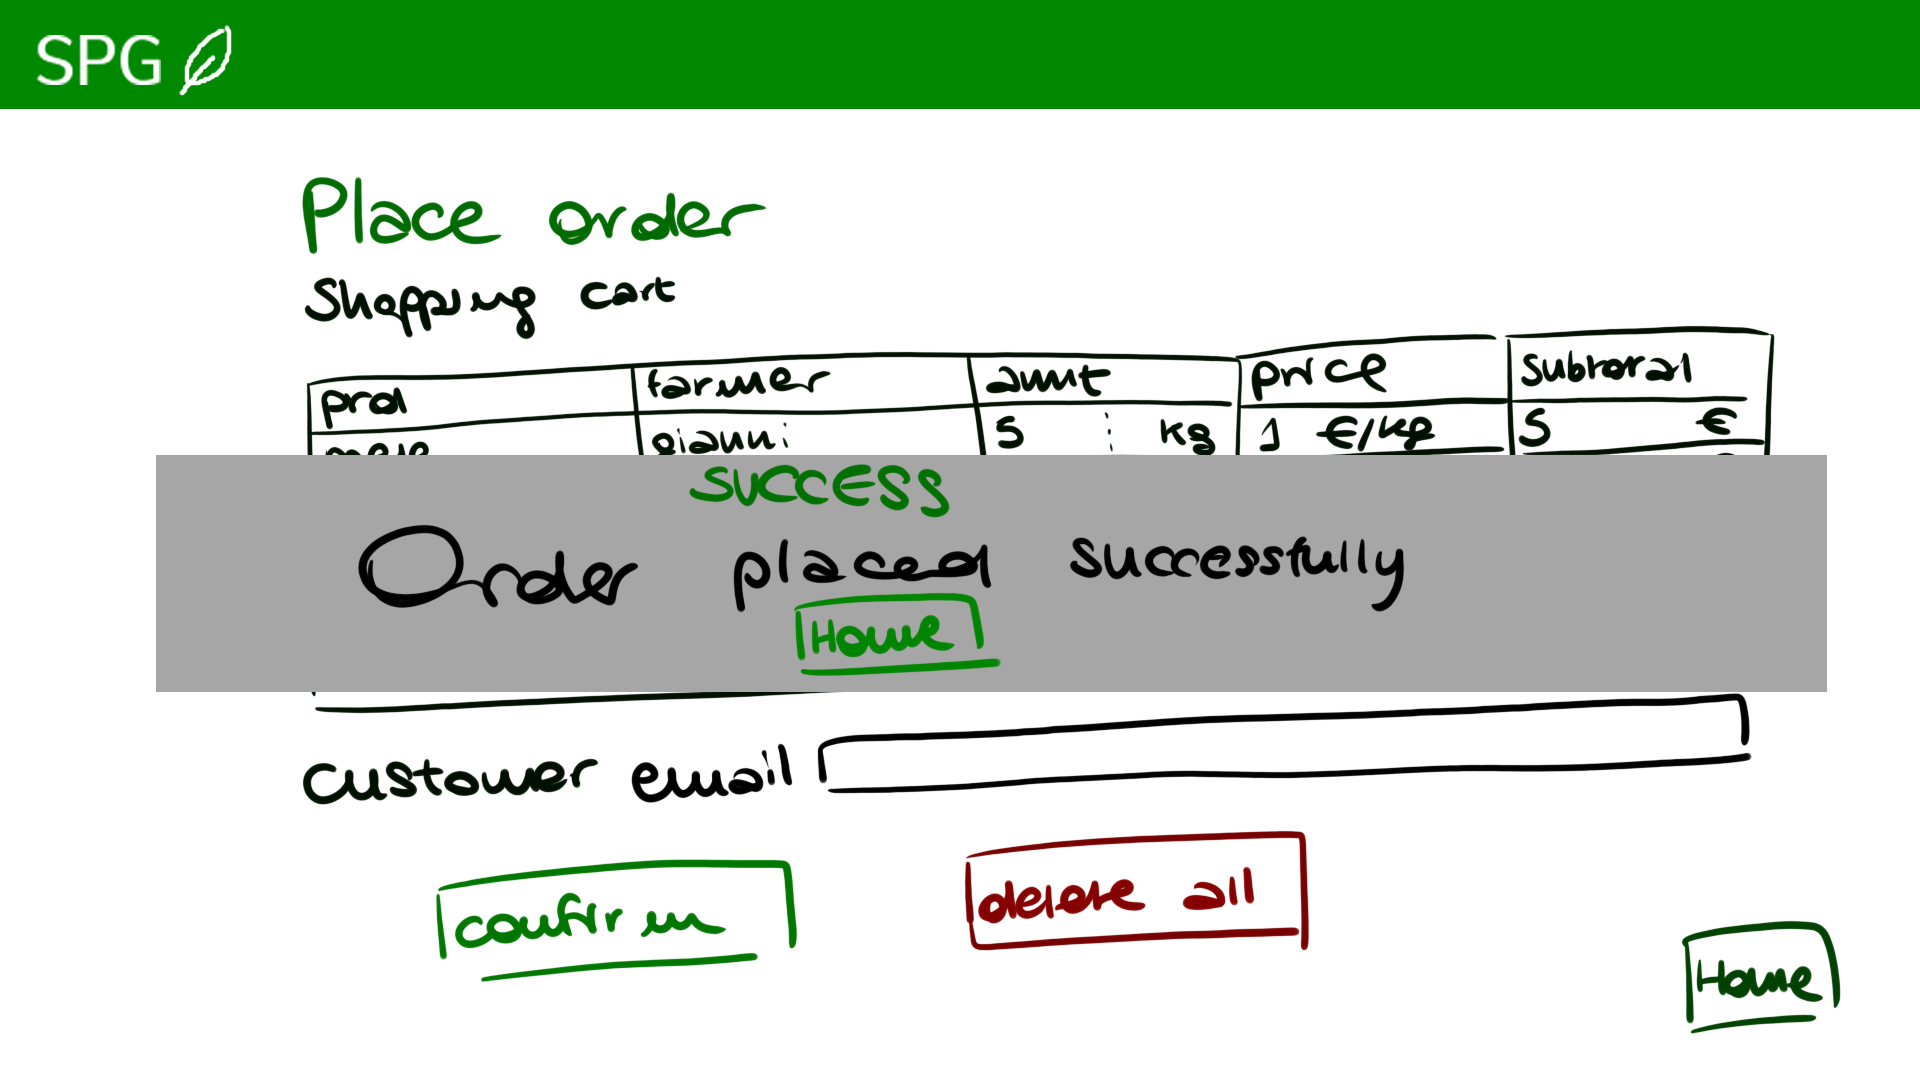 SPG
Place order
Shopping cart
prod farmer amnt price subtotal
mele gianni 5 kg 1 €/kg 5 €
SUCCESS
Order placed successfully
Home
customer email
confirm
delete all
Home